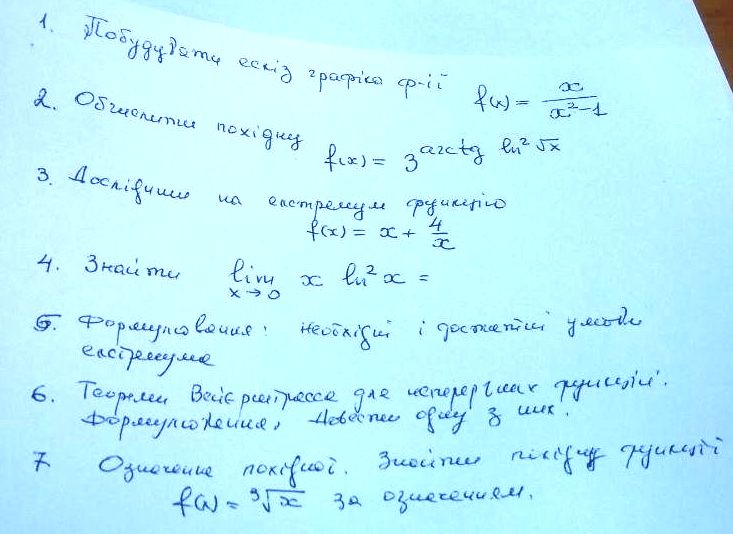 1. Побудувати ескіз графіка ф-ії f(x) = x / (x² - 1)
2. Обчислити похідну f(x) = 3^(arctg ln² √x)
3. Дослідити на екстремум функцію
f(x) = x + 4/x
4. Знайти lim x→0 x ln² x =
5. Формулювання: необхідні і достатні умови
екстремума
6. Теореми Вейєрштрасса для неперервних функцій.
Формулювання, довести одну з них.
7 Означення похідної. Знайти похідну функції
f(x) = ³√x за означенням.